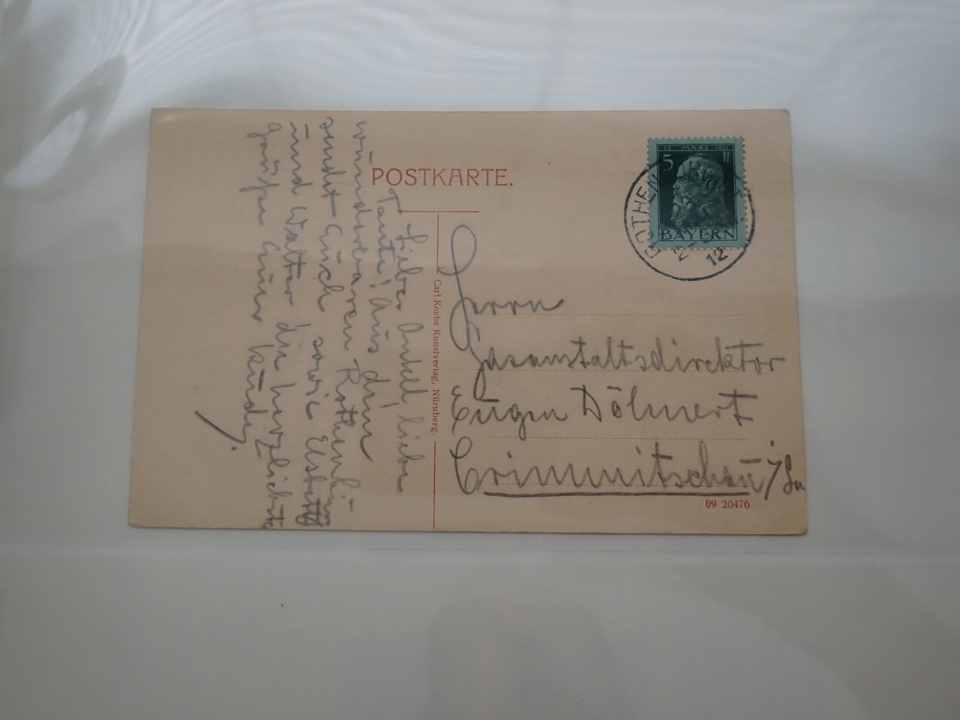 POSTKARTE.
Lieber Onkel, liebe
Tante! Aus dem
wunderbaren Rothenburg
sendet Euch sowie Elsbeth
und Walter die herzlichsten
Grüße Euer
Carl Kochs Kunstverlag, Nürnberg.
5
BAYERN
ROTHEN
12
Herrn
Gasanstaltsdirektor
Eugen Döhnert
Crimmitschau i/Sa
09 20476